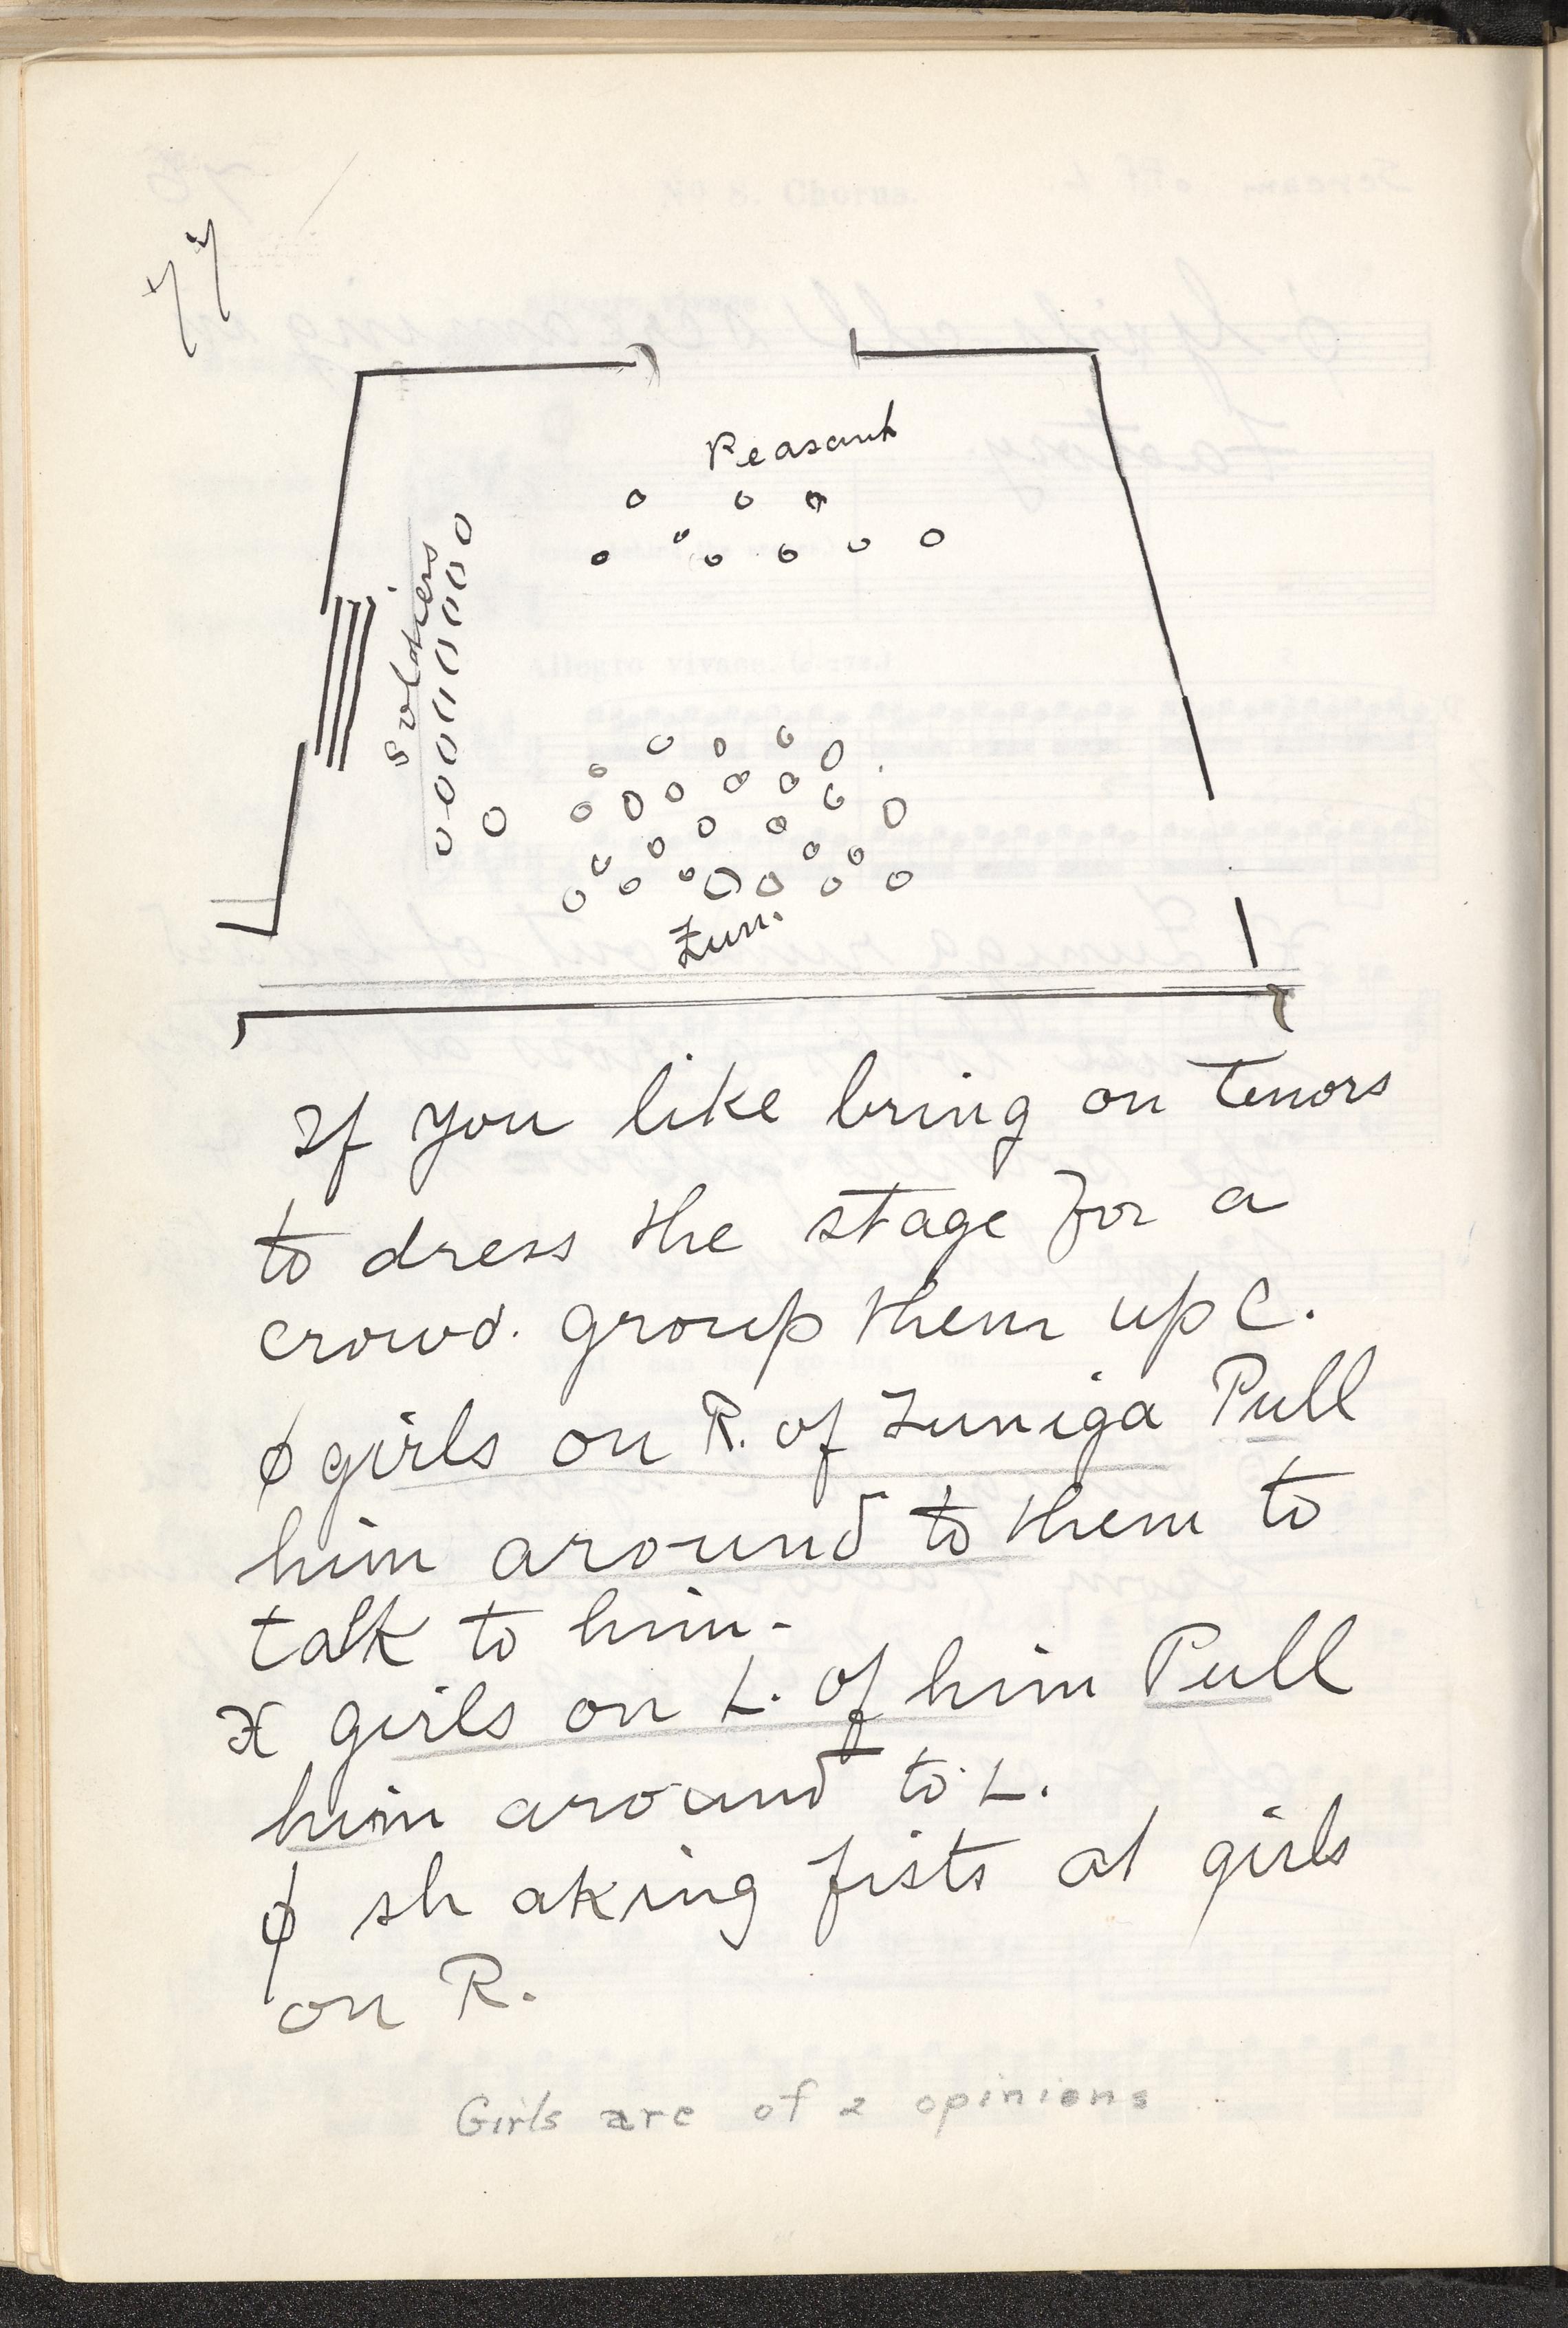 77
Peasants
Soldiers
Zun.
If you like bring on Tenors
to dress the stage for a
crowd. group them up C.
ϕ girls on R. of Zuniga Pull
him around to them to
talk to him -
X girls on L. of him Pull
him around to L.
ϕ shaking fists at girls
on R.
Girls are of 2 opinions